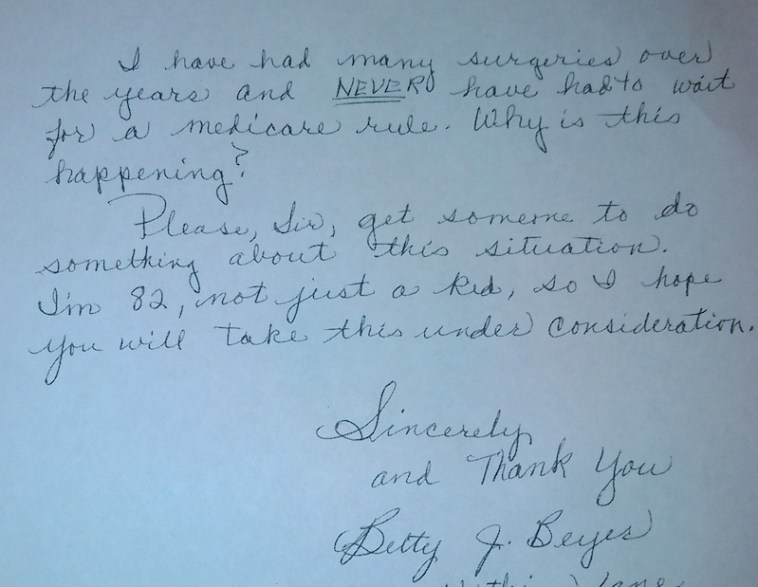 I have had many surgeries over
the years and NEVER have had to wait
for a medicare rule. Why is this
happening?
Please, Sir, get someone to do
something about this situation.
I'm 82, not just a kid, so I hope
you will take this under consideration.
Sincerely
and Thank You
Betty J. Beyer
Lane